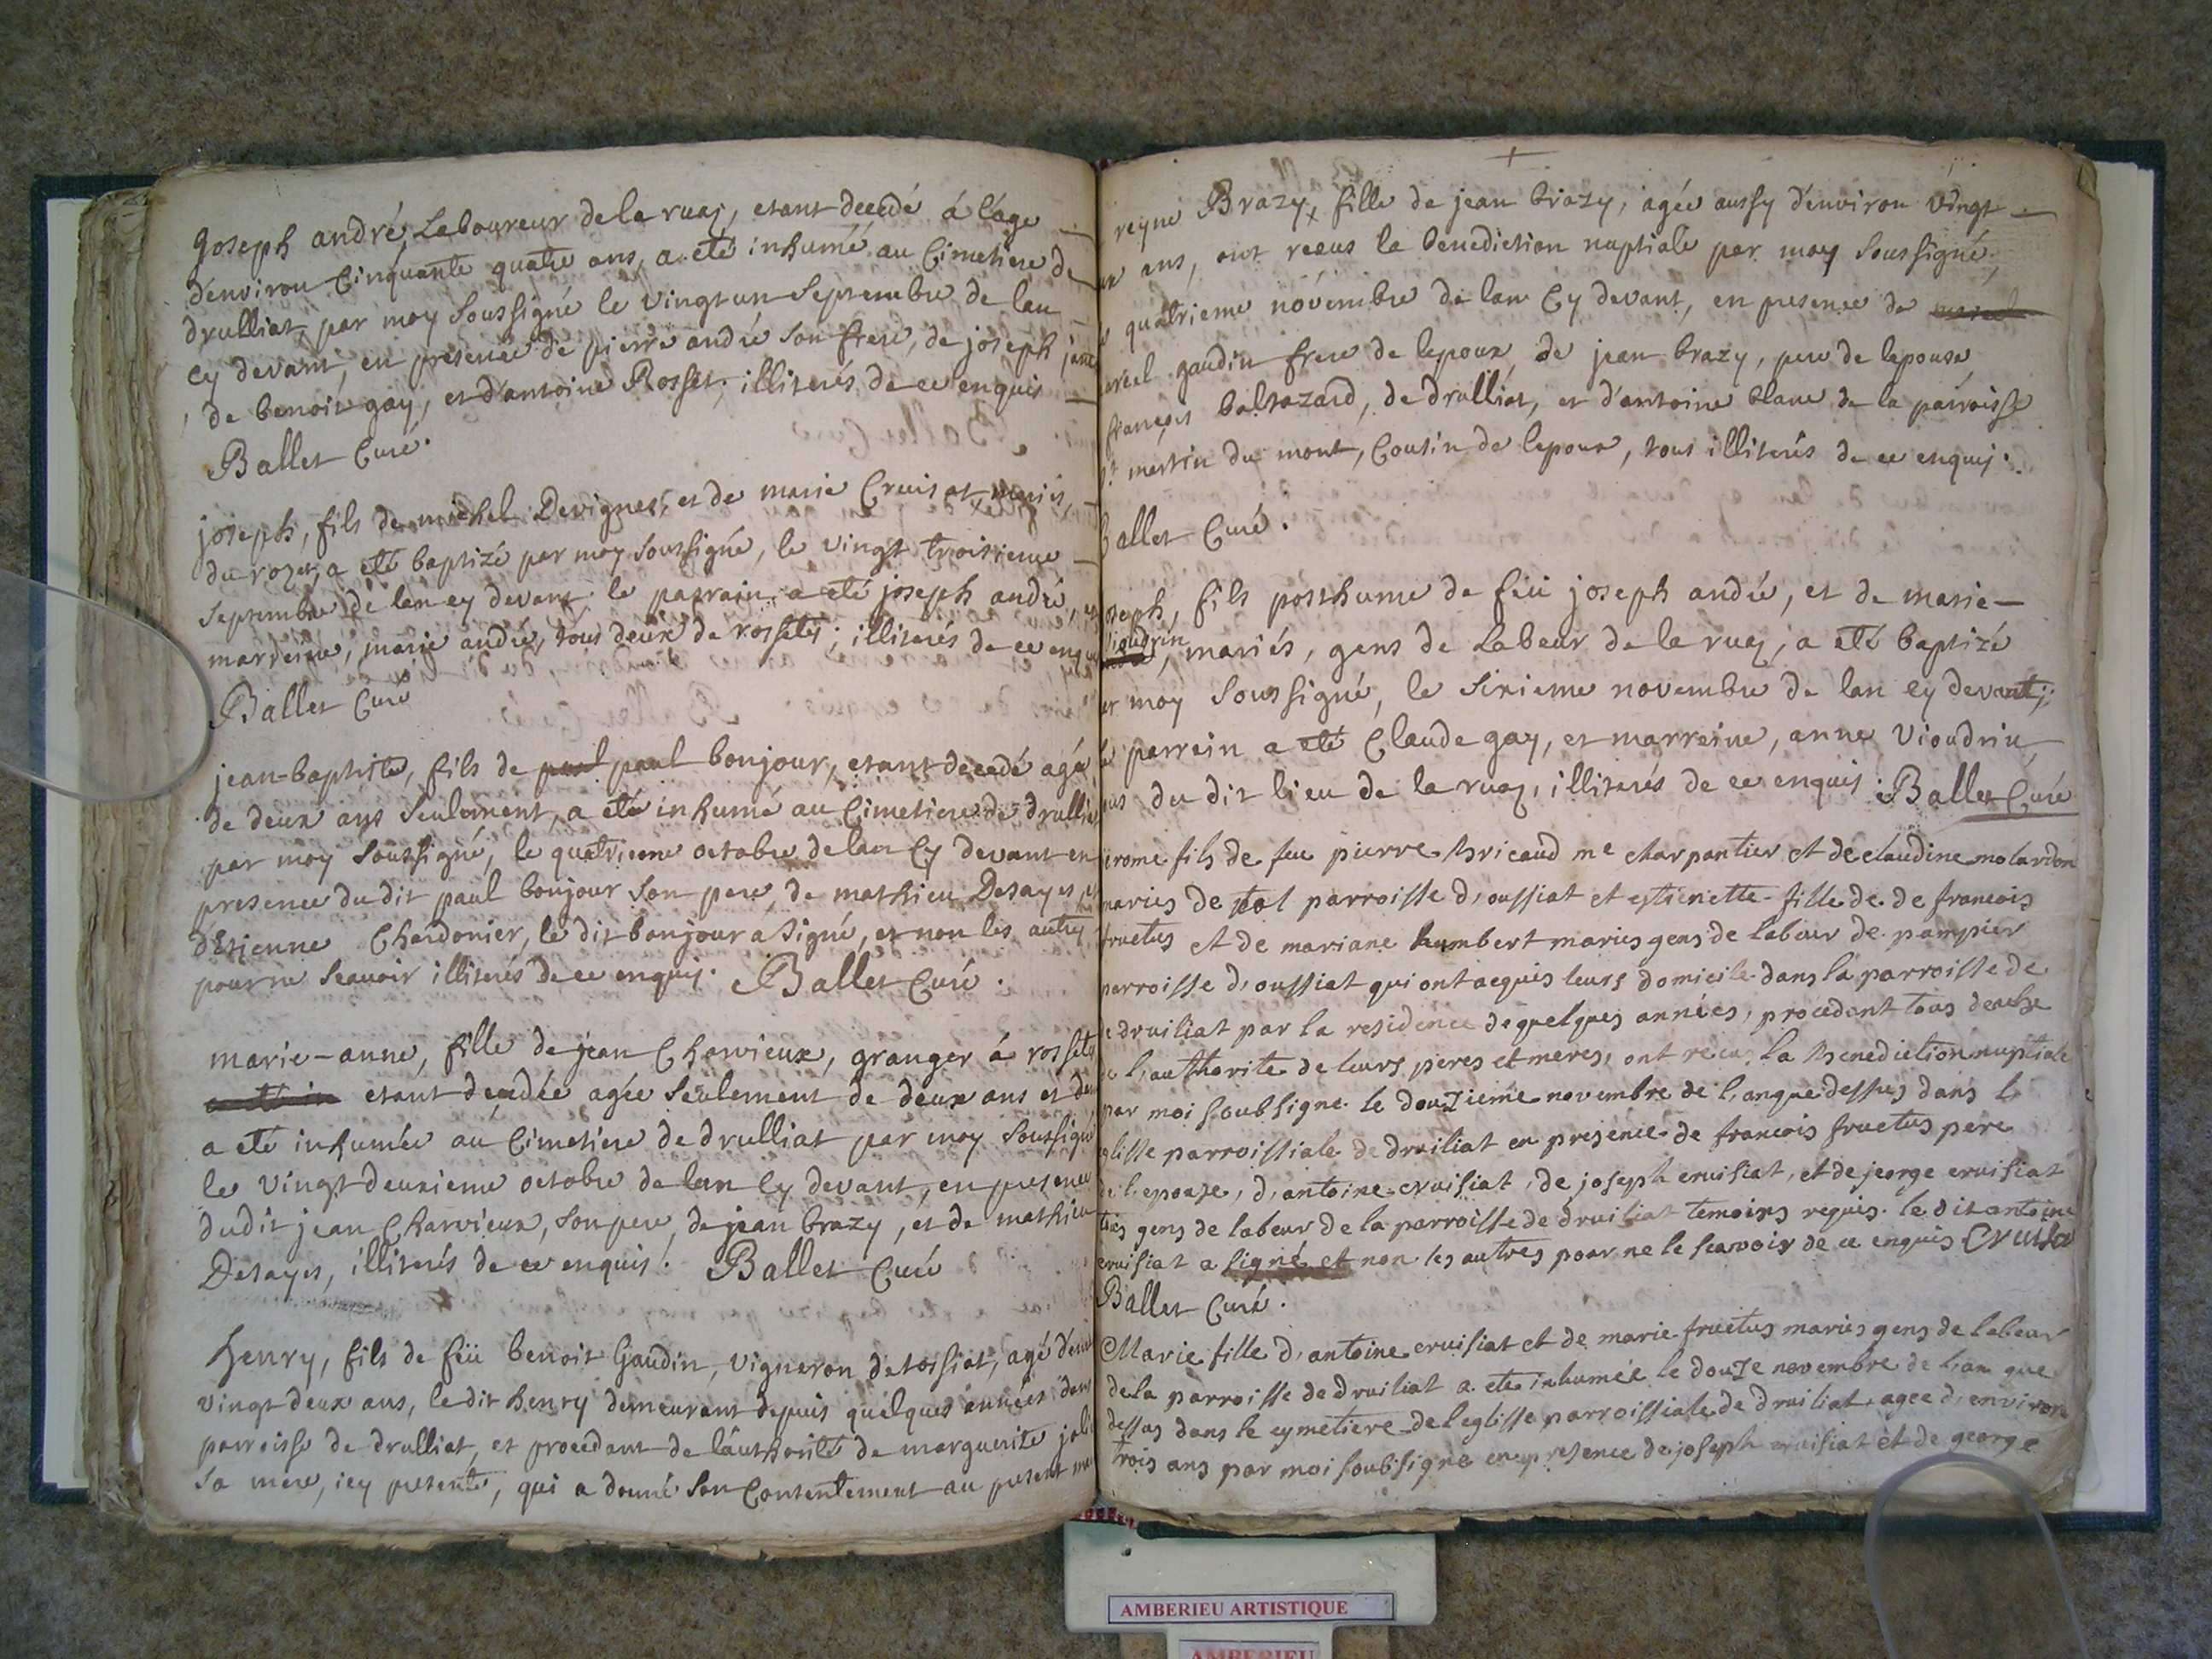 Joseph andré, Laboureur de la ruaz, etant decedé á láge
dénviron Cinquante quatre ans, a eté inhumé au Cimetiere de
drulliat, par moy Soussigné le vingt un Septembre de lan
cy devant, en presence de pierre andré Son frere, de joseph
de benoit gay, et d'antoine Rosset, illiterés de ce enquis
Ballet Curé.
joseph, fils de michel Devignes, et de marie Cruisat, mariés,
du rozet, a eté baptizé par moy Soussigné, le vingt troisieme
Septembre de lan cy devant, le parrain, a eté joseph andré,
marreine, marie andré, tous deux de rossets; illiterés de ce
Ballet Curé
jean-baptiste, fils de paul paul bonjour, etant decedé agé
de deux ans Seulement, a eté inhumé au Cimetiere de
par moy Soussigné, le quatrieme octobre de lan Cy devant en
presence du dit paul bonjour Son pere, de mathieu Desayes,
d'Etienne Chardonier, le dit bonjour a Signé, et non les autres
pour ne Scavoir illiterés de ce enquis. Ballet Curé.
marie-anne, fille de jean Charvieux, granger á rossets
etant decedée agée Seulement de deux ans et
a eté inhumée au Cimetiere de drulliat par moy Soussigné
le vingt deuxieme octobre de lan Cy devant, en presence
dudit jean Charvieux, Son pere, de jean brazy, et de mathieu
Desayes, illiterés de ce enquis. Ballet Curé
henry, fils de feü benoit Gaudin, vigneron de tossiat, agé
vingt deux ans, le dit henry demeurant depuis quelques années dans
parroisse de drulliat, et procedant de láuthorité de marguerite
Sa mere, icy presente, qui a donné Son Consentement au present
reyne Brazy, fille de jean brazy, agée aussy dénviron vingt
ans, ont receus la benediction nuptiale par moy Soussigné,
quatrieme novembre de lan Cy devant, en presence de
gaudin frere de lepoux, de jean brazy, pere de lepouse,
françois baltazard, de drulliat, et d'antoine blanc de la parroisse
St martin du mont, Cousin de lepoux, tous illiterés de ce enquis.
Ballet Curé.
joseph, fils posthume de feü joseph andré, et de marie
Vioudrin, mariés, gens de Labeur de la ruaz, a eté baptizé
moy Soussigné, le Sixieme novembre de lan Cy devant;
le parrein a eté Claude gay, et marreine, anne Vioudrin,
du dit lieu de la ruaz, illiterés de ce enquis. Ballet Curé
jerome fils de feu pierre bricaud me charpantier et de claudine molardon
maries de pol parroisse d'oussiat et estienette fille de de francois
fructus et de mariane humbert maries gens de labeur de pampier
parroisse d'oussiat qui ont acquis leurs domicile dans la parroisse de
druiliat par la residence de quelques années, procedant tous deuxe
l'authorite de leurs peres et meres, ont recus la benediction nuptiale
par moi soubsigne le douzieme novembre de l'an que dessus dans l
eglisse parroissiale de druiliat en presence de francois fructus pere
de l'epouze, d'antoine cruisiat, de joseph cruisiat, et de jeorge cruisiat
tous gens de labeur de la parroisse de druiliat temoins requis. le dit antoine
cruisiat a signé et non les autres pour ne le scavoir de ce enquis
Ballet Curé.
Marie fille d'antoine cruisiat et de marie fructus maries gens de labeur
de la parroisse de druiliat a ete inhumée le douze novembre de l'an que
dessus dans le cymetiere de l'eglisse parroissiale de druiliat agee d'environ
trois ans par moi soubsigne en presence de joseph cruisiat et de george
AMBERIEU ARTISTIQUE
AMBERIEU